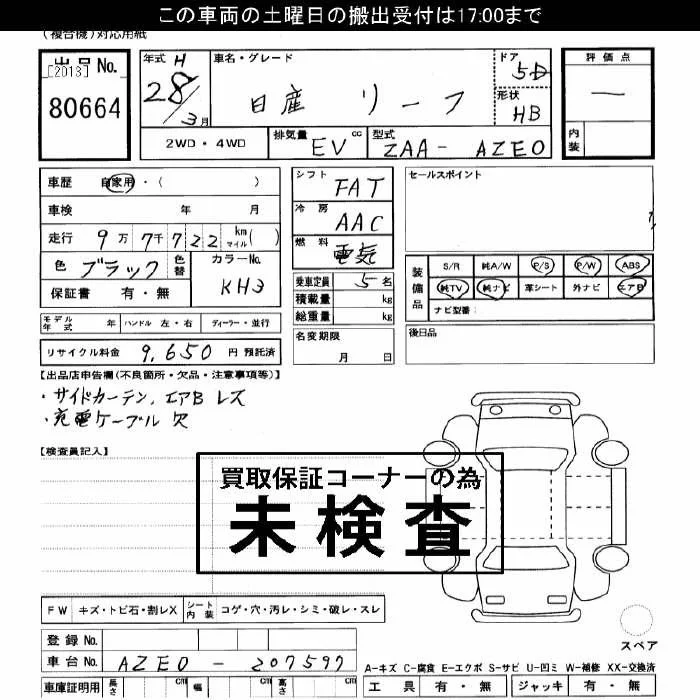 この車両の土曜日の搬出受付は17:00まで
(複合機)対応用紙
出品No.
[2013]
80664
年式 H
28/3月
車名・グレード
日産 リーフ
ドア
5D
形状
HB
評価点
—
内装
2WD・4WD
排気量 EV cc
型式 ZAA- AZE0
車歴 自家用・( )
車検 年 月
走行 9万7千722 km マイル( )
色 ブラック 色替
カラーNo. KH3
保証書 有・無
シフト FAT
冷房 AAC
燃料 電気
乗車定員 5名
積載量 kg
総重量 kg
名変期限
月 日
セールスポイント
装備品
S/R 純A/W P/S P/W ABS
純TV 純ナビ 革シート 外ナビ エアB
ナビ型番:
後日品
モデル年式 年 ハンドル 左・右 ディーラー・並行
リサイクル料金 9,650 円 預託済
【出品店申告欄(不良箇所・欠品・注意事項等)】
・サイドカーテン, エアB レス
・充電ケーブル 欠
【検査員記入】
買取保証コーナーの為
未検査
FW キズ・トビ石・割レX
シート内装 コゲ・穴・汚レ・シミ・破レ・スレ
登録No.
車台No. AZE0-207597
車庫証明用 長さ cm 幅 cm 高さ cm
スペア
A-キズ C-腐食 E-エクボ S-サビ U-凹ミ W-補修 XX-交換済
工具 有・無 ジャッキ 有・無